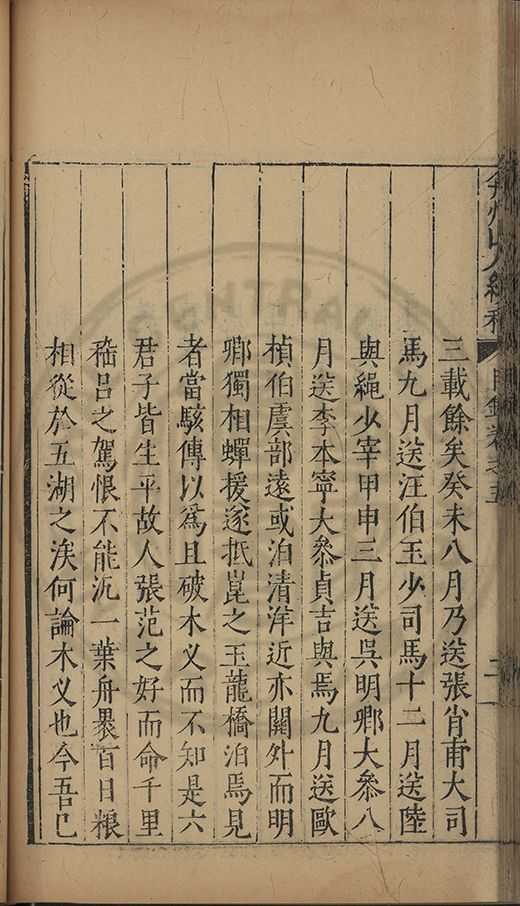 弇州山人續稿 目錄卷之五 二
三載餘矣癸未八月乃送張肖甫大司
馬九月送汪伯玉少司馬十二月送陸
與繩少宰甲申三月送吳明卿大參八
月送李本寧大叅貞吉與焉九月送歐
楨伯虞部遠或泊清洋近亦關外而明
卿獨相蟬援遂抵崑之玉龍橋泊焉見
者當駭傳以爲且破木义而不知是六
君子皆生平故人張范之好而命千里
嵇呂之駕恨不能汎一葉舟褁百日糧
相從於五湖之涘何論木义也今吾已